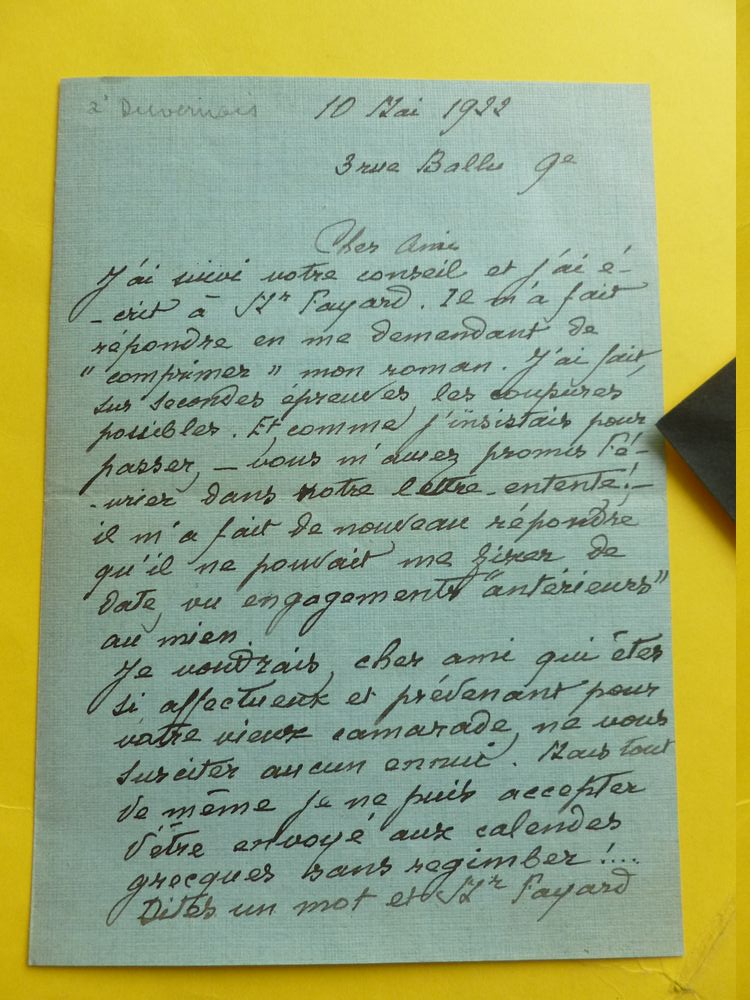 à Duvernois
10 Mai 1922
3 rue Ballu 9e
Cher Ami
J'ai suivi votre conseil et j'ai é-
-crit à Mr Fayard. Il m'a fait
répondre en me demandant de
"comprimer" mon roman. J'ai fait,
sur secondes épreuves les coupures
possibles. Et comme j'insistais pour
passer, – vous m'aviez promis Fé-
-vrier dans notre lettre-entente! –
il m'a fait de nouveau répondre
qu'il ne pouvait me fixer de
date, vu engagements "antérieurs"
au mien.
Je voudrais, cher ami qui êtes
si affectueux et prévenant pour
votre vieux camarade, ne vous
susciter aucun ennui. Mais tout
de même je ne puis accepter
d'être envoyé aux calendes
grecques sans regimber!....
Dites un mot et Mr Fayard